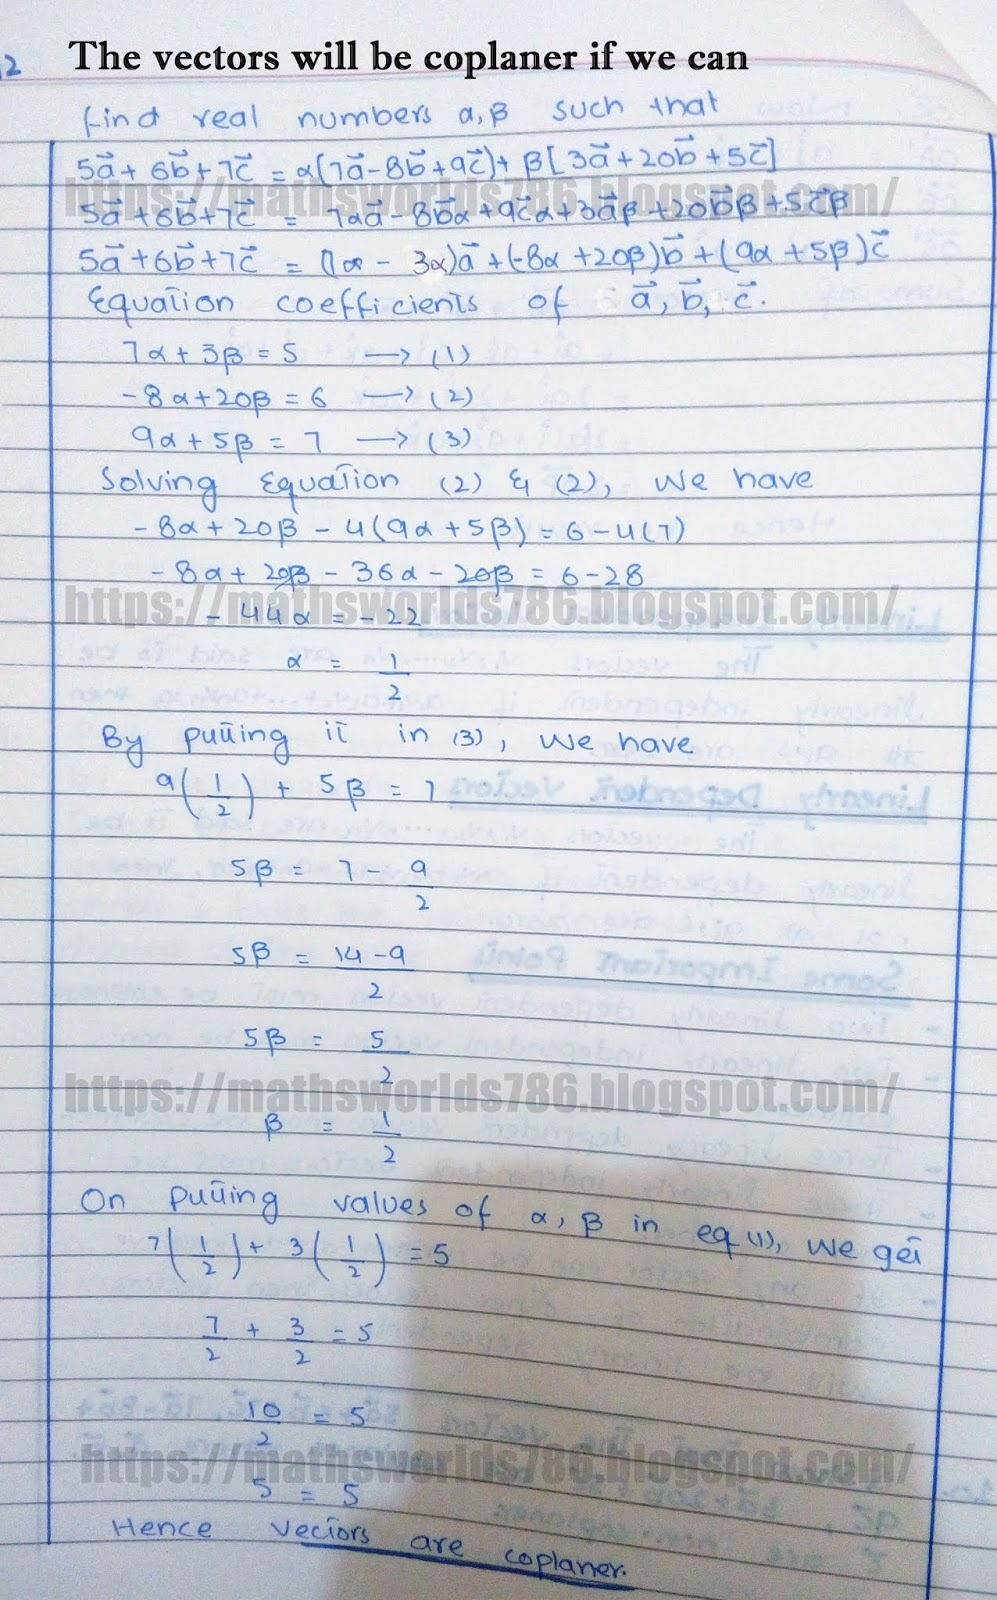 12 The vectors will be coplaner if we can
find real numbers α, β such that
5a⃗ + 6b⃗ + 7c⃗ = α(7a⃗ - 8b⃗ + 9c⃗) + β[3a⃗ + 20b⃗ + 5c⃗]
https://mathsworlds786.blogspot.com/
5a⃗ + 6b⃗ + 7c⃗ = 7αa⃗ - 8b⃗α + 9c⃗α + 3a⃗β + 20b⃗β + 5c⃗β
5a⃗ + 6b⃗ + 7c⃗ = (7α - 3α)a⃗ + (-8α + 20β)b⃗ + (9α + 5β)c⃗
Equation coefficients of a⃗, b⃗, c⃗.
7α + 3β = 5 → (1)
-8α + 20β = 6 → (2)
9α + 5β = 7 → (3)
Solving Equation (2) & (2), we have
-8α + 20β - 4(9α + 5β) = 6 - 4(7)
-8α + 20β - 36α - 20β = 6 - 28
https://mathsworlds786.blogspot.com/
-44α = -22
α = 1/2
By putting it in (3), we have
9(1/2) + 5β = 7
5β = 7 - 9/2
5β = 14 - 9/2
5β = 5/2
https://mathsworlds786.blogspot.com/
β = 1/2
On putting values of α, β in eq (1), we get
7(1/2) + 3(1/2) = 5
7/2 + 3/2 = 5
10/2 = 5
https://mathsworlds786.blogspot.com/
5 = 5
Hence vectors are coplaner.